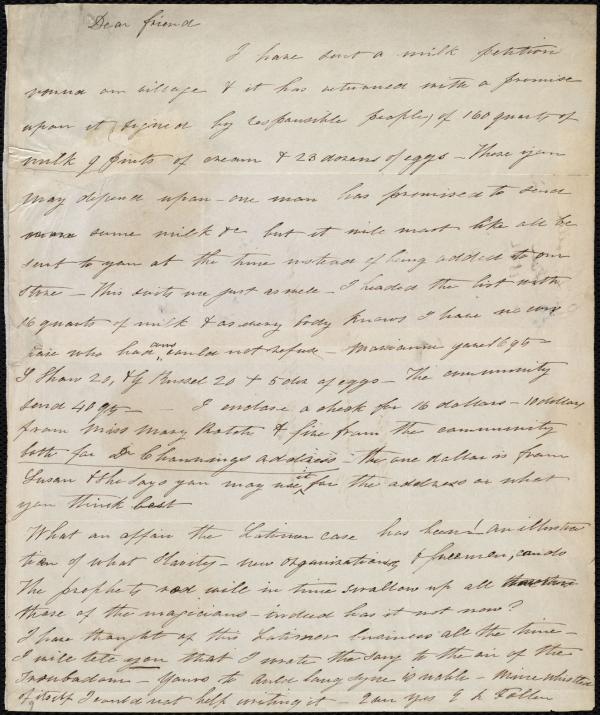 Dear friend
I have sent a milk petition
round our village & it has returned with a promise
upon it (signed by responsible people) of 160 quarts of
milk 9 pints of cream & 23 dozens of eggs - These you
may depend upon - one man has promised to send
some milk &c but it will most like all be
sent to you at the time instead of being added to our
store - This suits me just as well - I headed the list with
16 quarts of milk & as every body knows I have no cow
those who had any could not refuse - Marianne gave 16 qts
S Shaw 20, & G Russel 20 & 5 doz of eggs - The community
send 40 qts - I enclose a check for 16 dollars - 10 dollars
from Miss Mary Rotch & five from the community
both for Dr Channings address - the one dollar is from
Susan & she says you may use it for the address or what
you think best
What an affair the Latimer case has been! an illustra
tion of what Clarity - new organizations & freemen, can do
The prophets rod will in time swallow up all
those of the magicians - indeed has it not now?
I have thought of this Latimer business all the time -
I will tell you that I wrote the song to the air of the
Troubadour - Yours to Auld lang syne is noble - Mine whistled
of itself I could not help writing it - Yours E L Follen